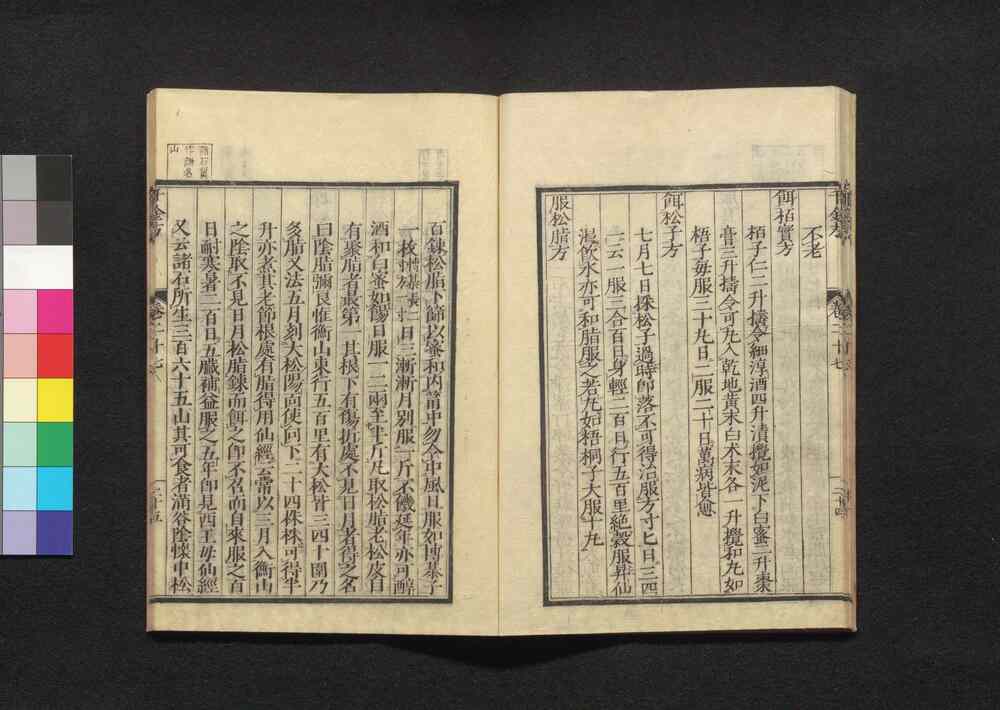 不老
餌栢實方
栢子仁二升擣令細淳酒四升漬攪如泥下白蜜二升棗
膏三升擣令可丸入乾地黃末白术末各一升攪和丸如
梧子毎服三十九日二服二十日萬病皆愈
餌松子方
七月七日採松子過時即落不可得治服方寸匕日三四
一云一服三合百日身輕二百日行五百里絶穀服昇仙
渴飲水亦可和脂服之若丸如梧桐子大服十九
服松脂方
百鍊松脂下篩以蜜和内筩中勿令中風日服如博棊子
一枚
日三漸漸月別服一斤不饑延年亦可醇
酒和白蜜如餳日服一二兩至半斤凡取松脂老松皮自
有聚脂者最第一其根下有傷折處不見日月者得之名
曰陰脂彌良惟衡山東行五百里有大松皆三四十圍乃
多脂又法五月刻大松陽面使向下二十四株株可得半
升亦煮其老節根處有脂得用仙經云常以三月入衡山
之陰取不見日月松脂鍊而餌之即不召而自來服之百
日耐寒暑二百日五臟補益服之五年即見西王母仙經
又云諸石所生三百六十五山其可食者滿谷陰懷中松
千金方
卷二十七
二十五